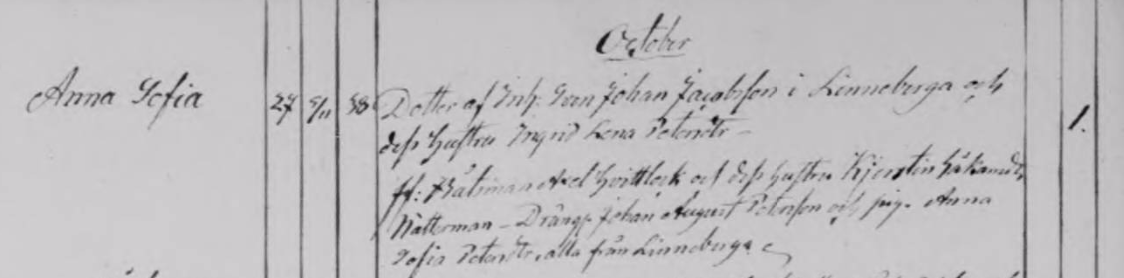 October
Anna Sofia 27 5/11 38 Dotter af Inh: Sven Johan Jacobsson i Linneberga och
dess Hustru Ingrid Lena Petersdtr – 1.
ff: Båtsman Axel Hvittlock och dess Hustru Kjerstin Håkansdtr
Nätterman – Dräng Johan August Peterson och pig. Anna
Sofia Petersdtr, alla från Linneberga